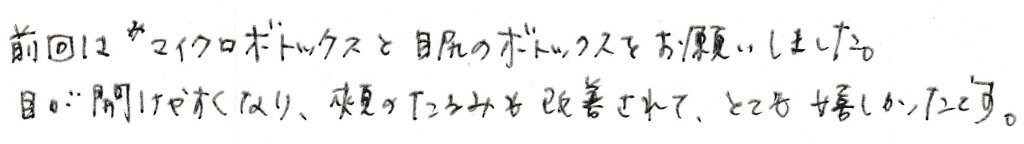 前回は マイクロボトックスと目尻のボトックスをお願いしました。
目が開けやすくなり、頬のたるみも改善されて、とても嬉しかったです。